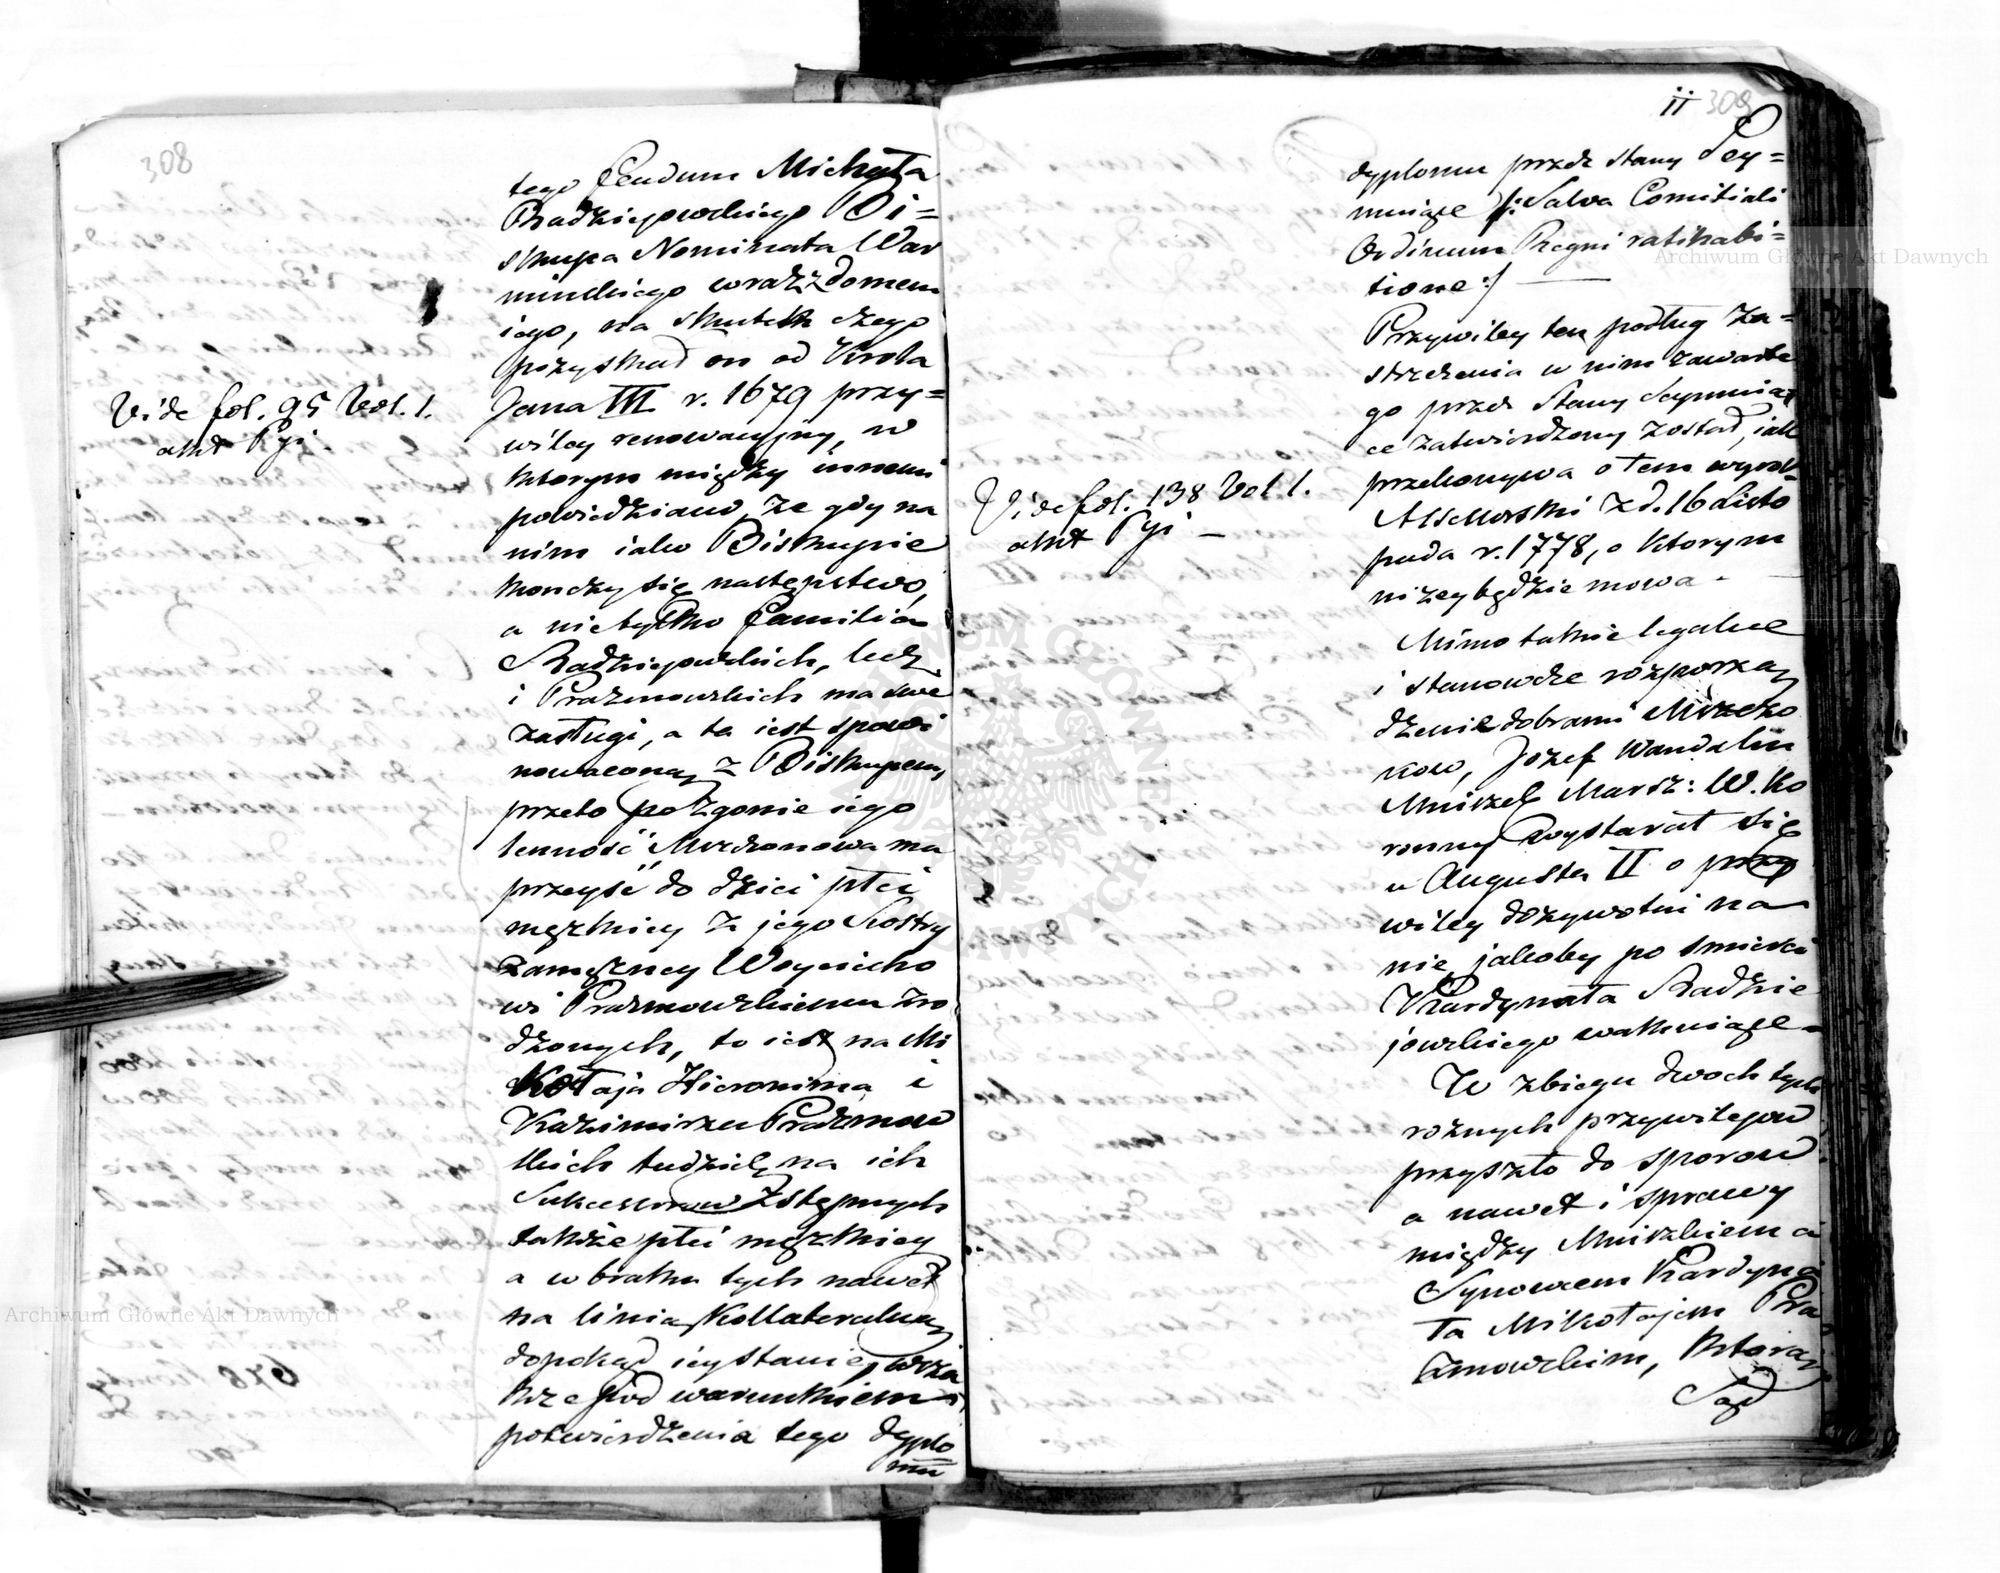 308
tego feudum Michała
Radziejowskiego Bi=
skupa Nominata War
minskiego wraz z domem
iego, na skutek czego
pozyskał on od Krola
Jana III r. 1679 przy=
wiley renowacyjny, w
ktorym między innemi
powiedziano, że gdy na
nim iako Biskupie
konczy się następstwo,
a nietylko familia
Radziejowskich, lecz
i Prażmowskich ma swe
zasługi, a ta iest spowi
nowaconą z Biskupem,
przeto po zgonie iego
lenność Mrzonowa ma
przeyść do dzieci płci
męzkiey z jego Siostry
zamężney Woyciecho
wi Prażmowskiemu zro
dzonych, to iest na Mi
kołaja Hieronima i
Kazimirza Prażmow
skich tudzież na ich
Sukcessorow zstępnych
także płci męzkiey
a w braku tych nawet
na linią kollateralną
dopokąd iey stanie, wsza
kże pod warunkiem
potwierdzenia tego dyplo
mu
Vide fol. 95 Vol. 1.
akt Pji.
ii 309
dyplomu przez stany Sey=
muiące /: Salva Comitiali
Ordinum Regni ratihabi=
tione :/ —
Przywiley ten podług za=
strzeżenia w nim zawarte
go przez Stany Seymuią
ce zatwierdzony został, iak
przekonywa o tem wyrok
Assessorski z d. 16 Listo
pada r. 1778, o ktorym
niżey będzie mowa -
Mimo takie legalne
i stanowcze rozporzą
dzenie dobrami Mirżeko
kow, Jozef Wandalin
Mniszek Marsz: W. Ko
ronny wystarał się
u Augusta II o przy
wiley dożywotni na
nie, jakoby po smierci
Kardynała Radzie
jowskiego wakuiące -
W zbiegu dwoch tych
rożnych przywilejow,
przyszło do sporow
a nawet i sprawy
między Mniszkiem a
Synowcem Kardyna
ła Mikołajem Pra
żmowskim, ktorą
Sąd
Vide fol. 138 Vol. 1.
akt Pji —
Archiwum Główne Akt Dawnych
Archiwum Główne Akt Dawnych